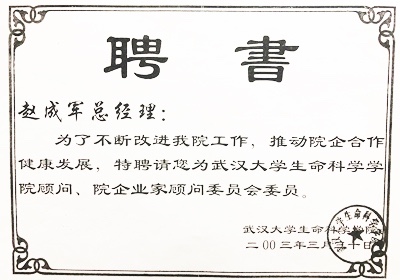 聘书
赵成军总经理：
为了不断改进我院工作，推动院企合作
健康发展，特聘请您为武汉大学生命科学学
院顾问、院企业家顾问委员会委员。
武汉大学生命科学学院
二00三年三月二十日